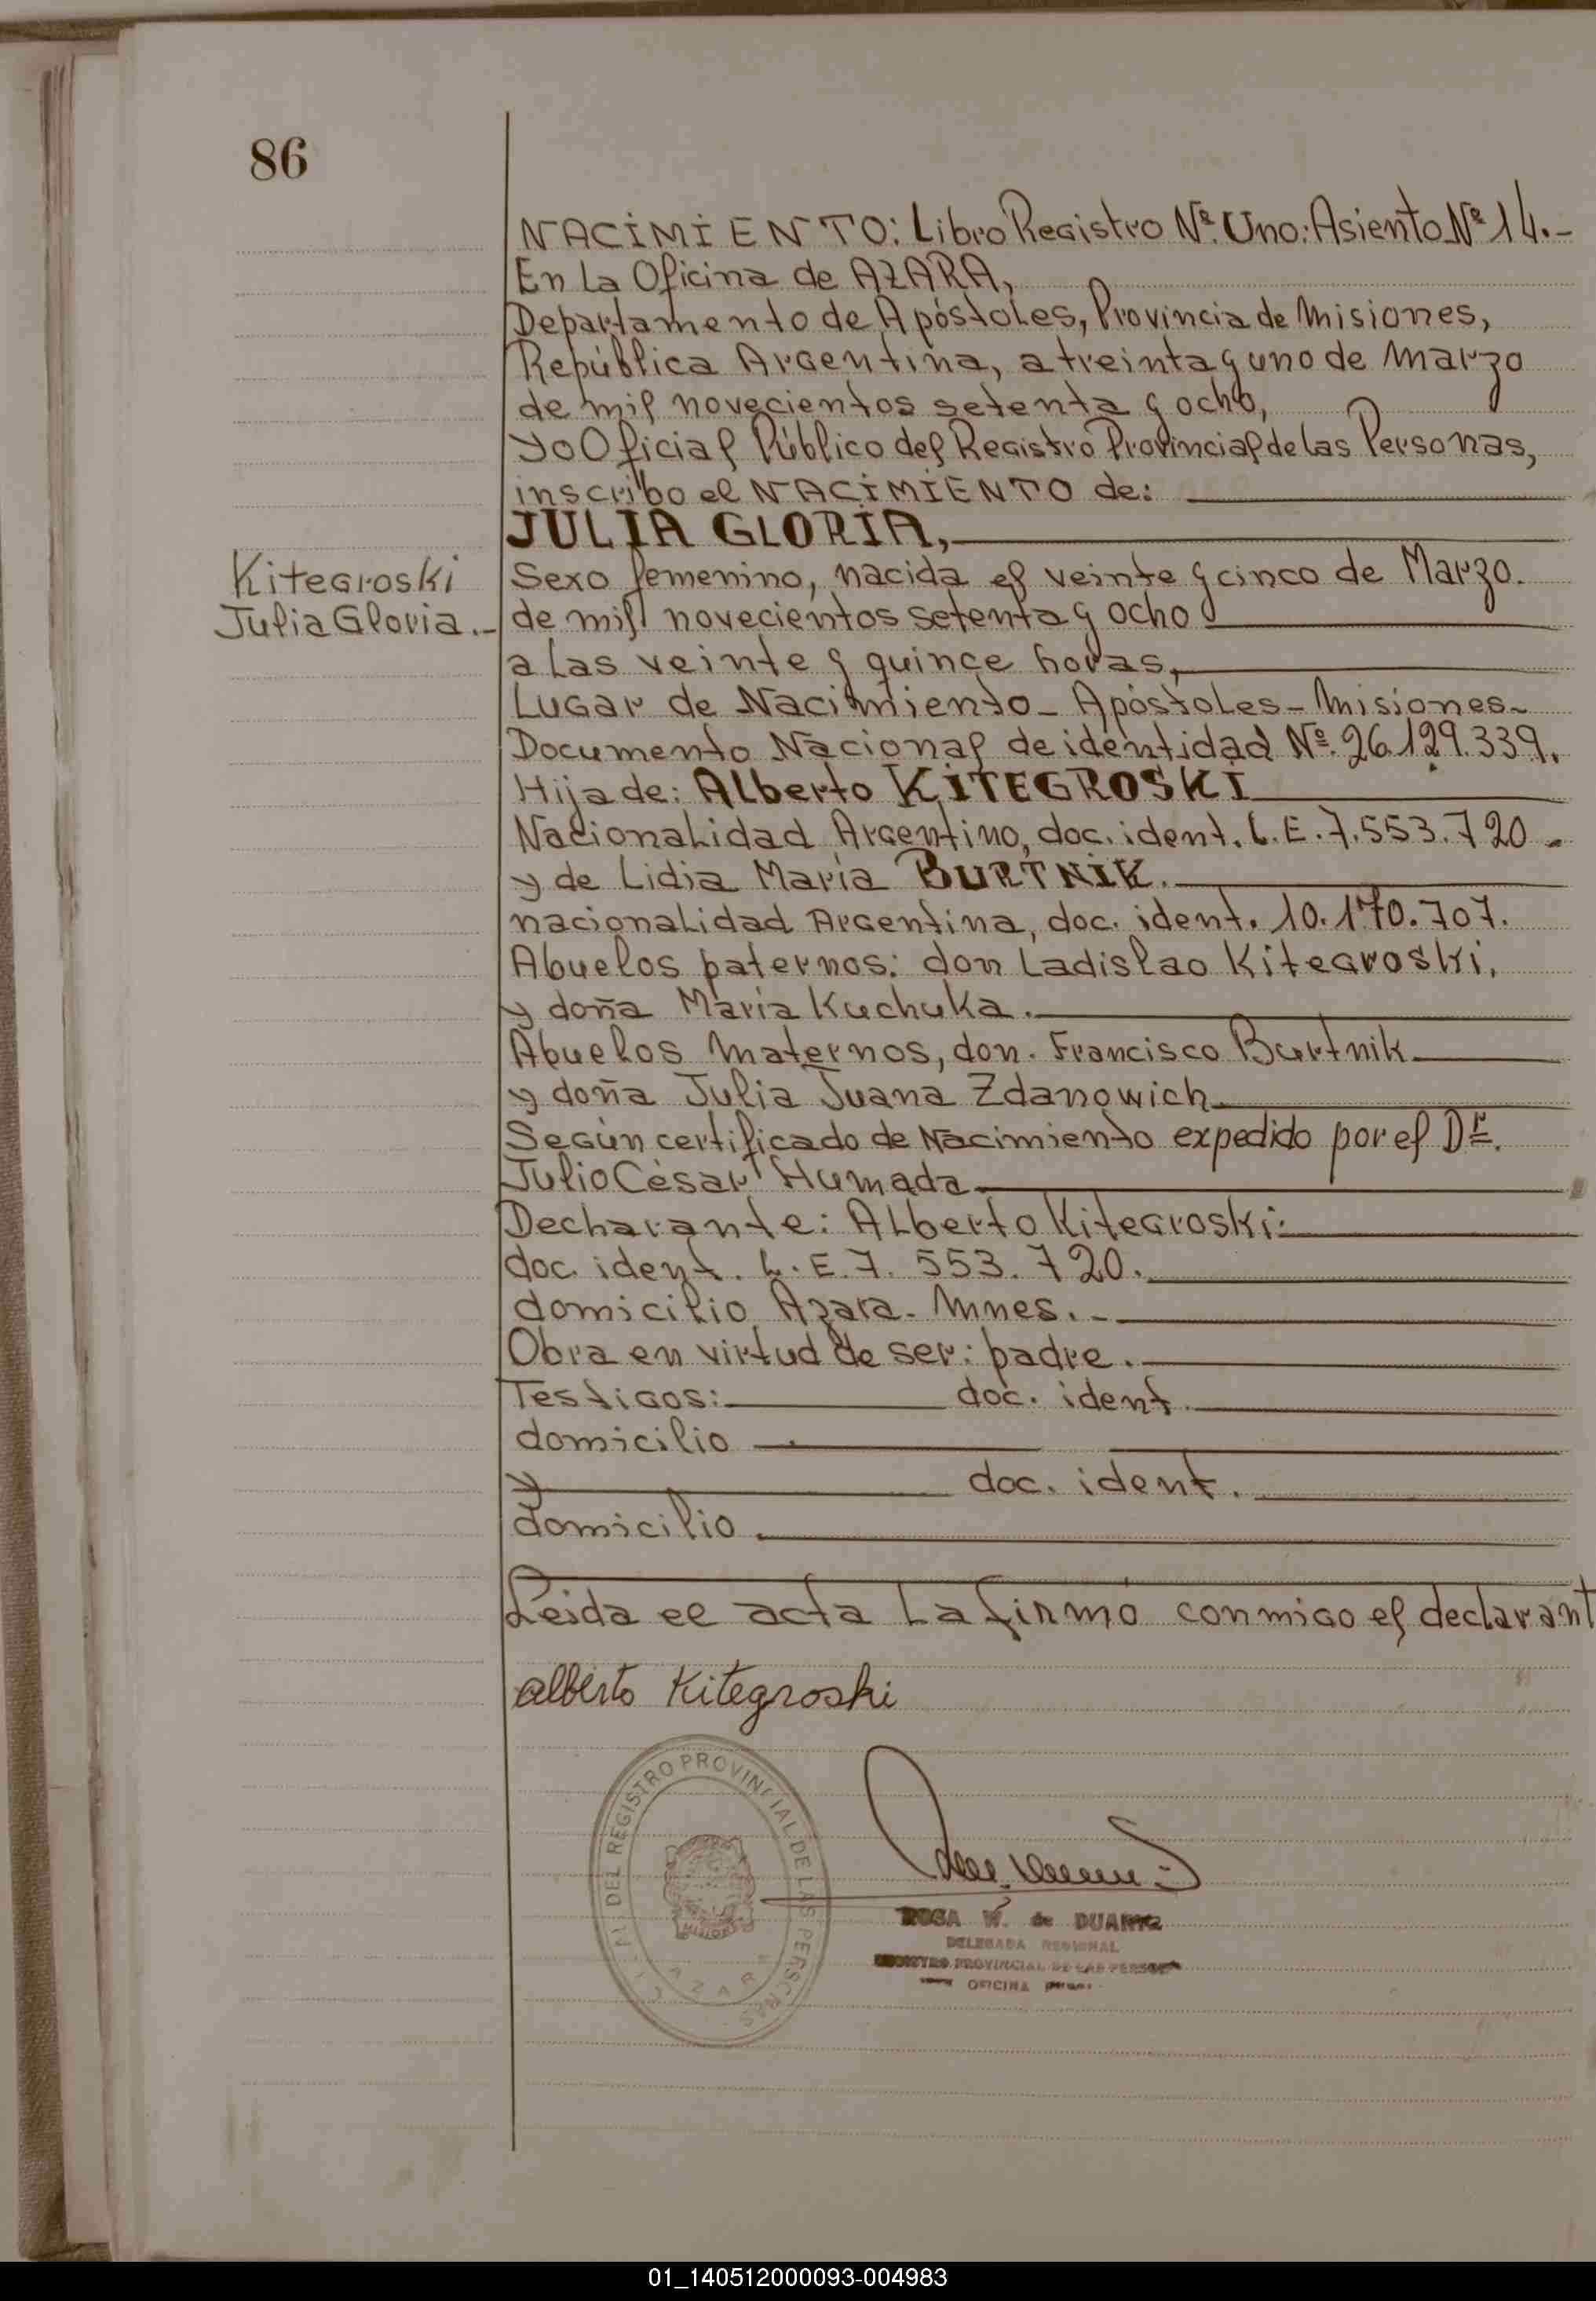 86
NACIMIENTO: Libro Registro Nº. Uno: Asiento Nº 14.-
En La Oficina de AZARA,
Departamento de Apóstoles, Provincia de Misiones,
República Argentina, a treinta y uno de Marzo
de mil novecientos setenta y ocho,
yo Oficial Público del Registro Provincial de las Personas,
inscribo el NACIMIENTO de:
JULIA GLORIA,
Kitegroski
Julia Gloria.-
Sexo femenino, nacida el veinte y cinco de Marzo.
de mil novecientos setenta y ocho
a las veinte y quince horas,
Lugar de Nacimiento - Apóstoles - Misiones-
Documento Nacional de identidad Nº. 26.129.339.
Hija de: Alberto KITEGROSKI
Nacionalidad Argentino, doc. ident. L.E. 7.553.720 -
y de Lidia María BURTNIK.
nacionalidad Argentina, doc. ident. 10.170.707.
Abuelos paternos: don Ladislao Kitegroski,
y doña María Kuchuka.
Abuelos maternos, don. Francisco Burtnik
y doña Julia Juana Zdanowich
Según certificado de Nacimiento expedido por el Dr.
Julio César Humada
Declarante: Alberto Kitegroski:
doc. ident. L.E. 7. 553. 720.
domicilio Azara - Mnes. -
Obra en virtud de ser: padre.
Testigos: doc. ident.
domicilio
y doc. ident.
domicilio
Leida el acta La firmó conmigo el declarant
alberto Kitegroski
DEL REGISTRO PROVINCIAL DE LAS PERSONAS
AZARA
ROSA W. de
DELEGADA REGIONAL
REGISTRO PROVINCIAL DE LAS PERSONAS
OFICINA
01_140512000093-004983